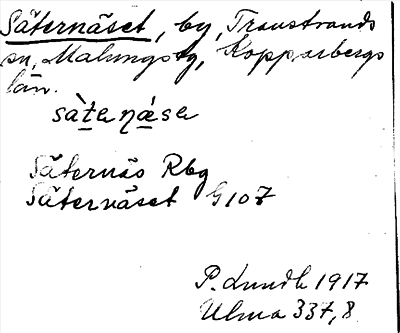 Säternäset, by, Transtrands
sn, Malungs tg, Kopparbergs
län.
sàtenǽse
Säternäs Rbg
Säternäset G107
P. Lundh 1917
Ulma 337,8